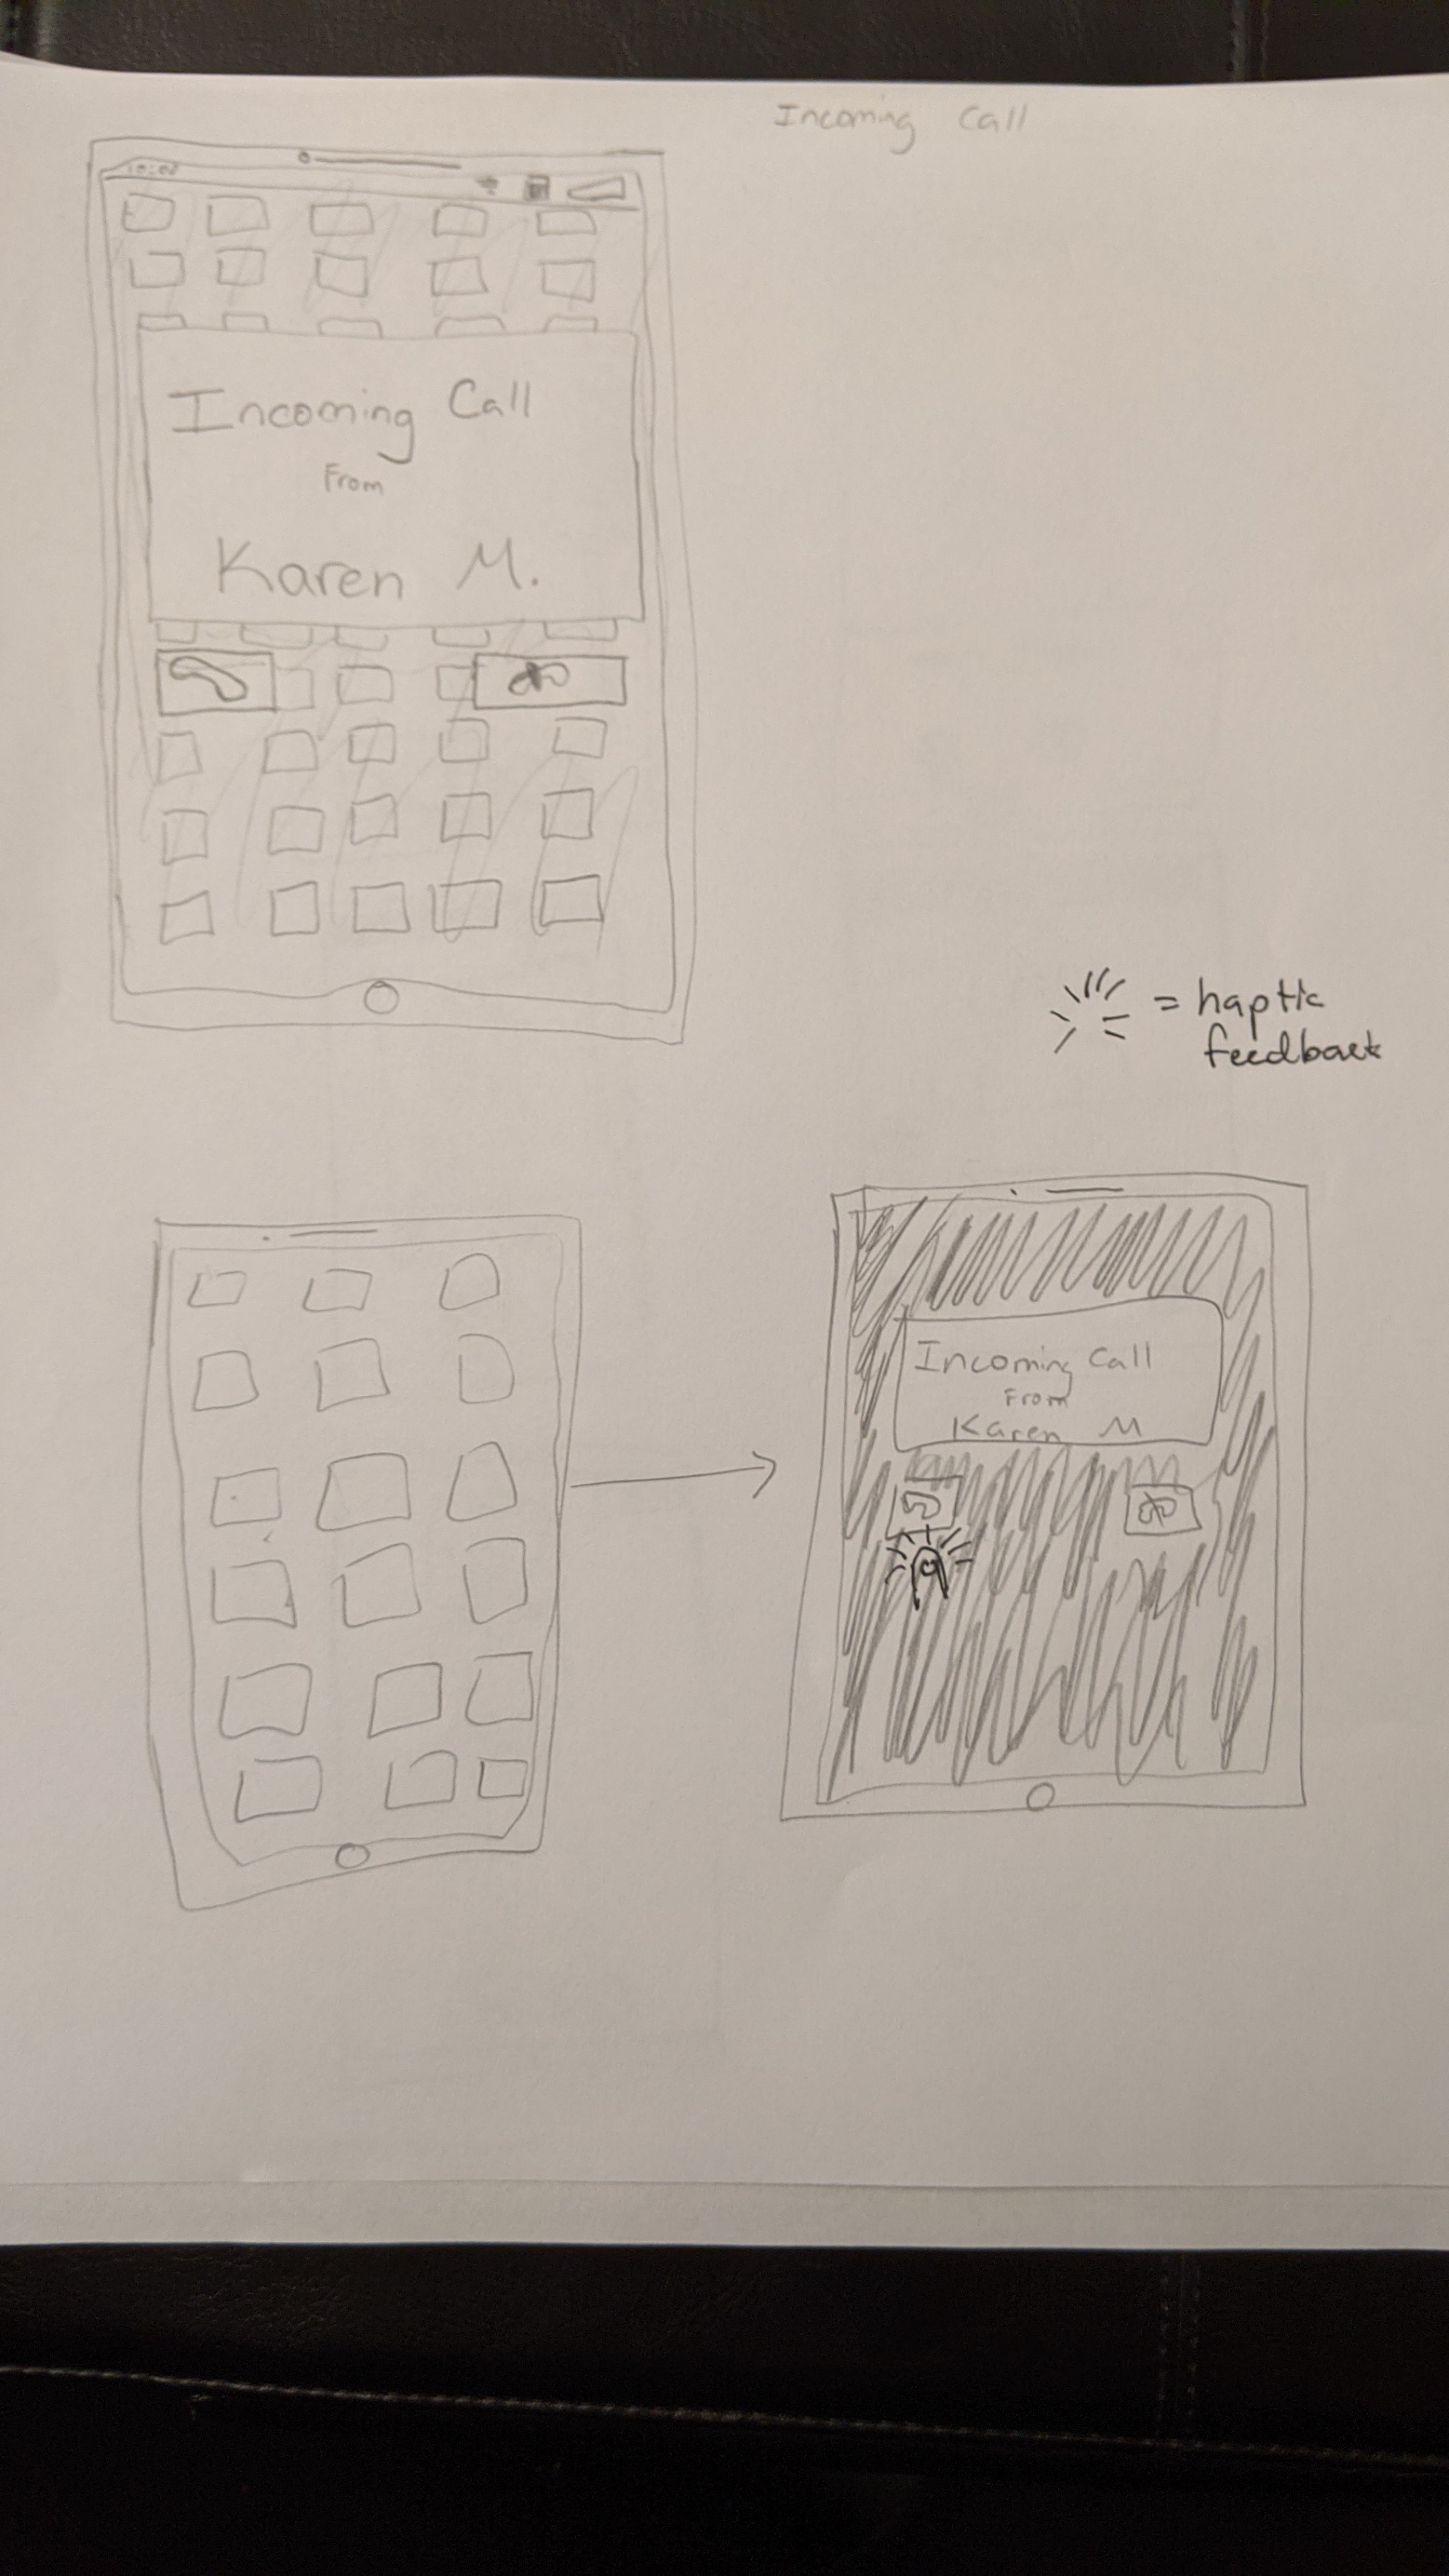 Incoming Call
Incoming Call
From
Karen M.
= haptic
feedback
Incoming Call
From
Karen M